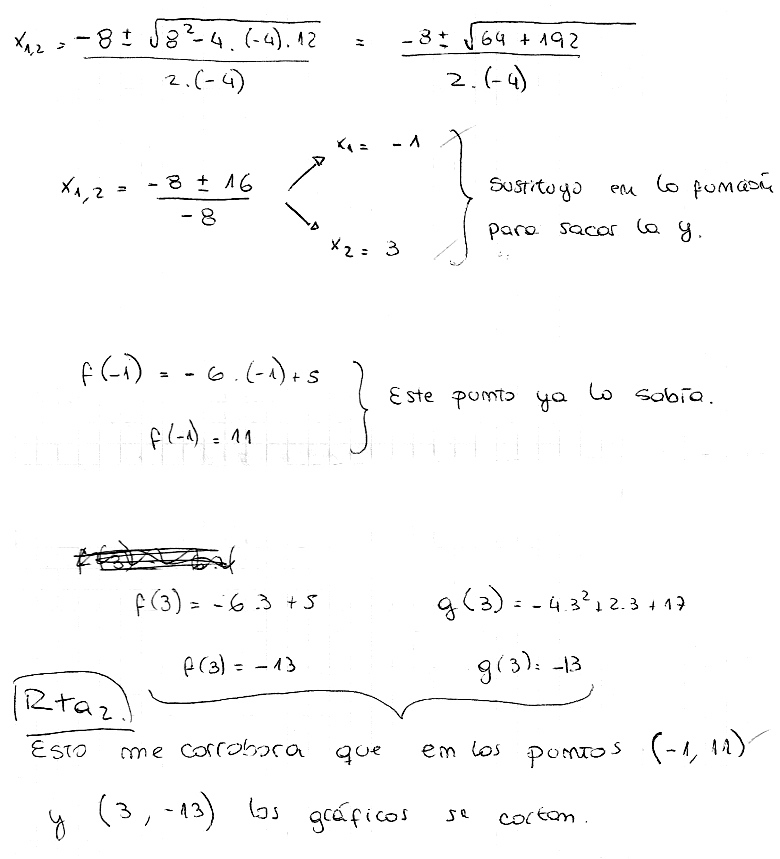 x₁,₂ = (-8 ± √(8² - 4 . (-4) . 12)) / (2 . (-4)) = (-8 ± √(64 + 192)) / (2 . (-4))
x₁ = -1
x₁,₂ = (-8 ± 16) / -8
sustituyo en la función
para sacar la y.
x₂ = 3
f(-1) = - 6 . (-1) + 5
Este punto ya lo sabía.
f(-1) = 11
f(3) = -6 . 3 + 5
g(3) = -4.3² + 2.3 + 17
f(3) = -13
g(3) = -13
Rta₂.
Esto me corrobora que en los puntos (-1, 11)
y (3, -13) los gráficos se cortan.